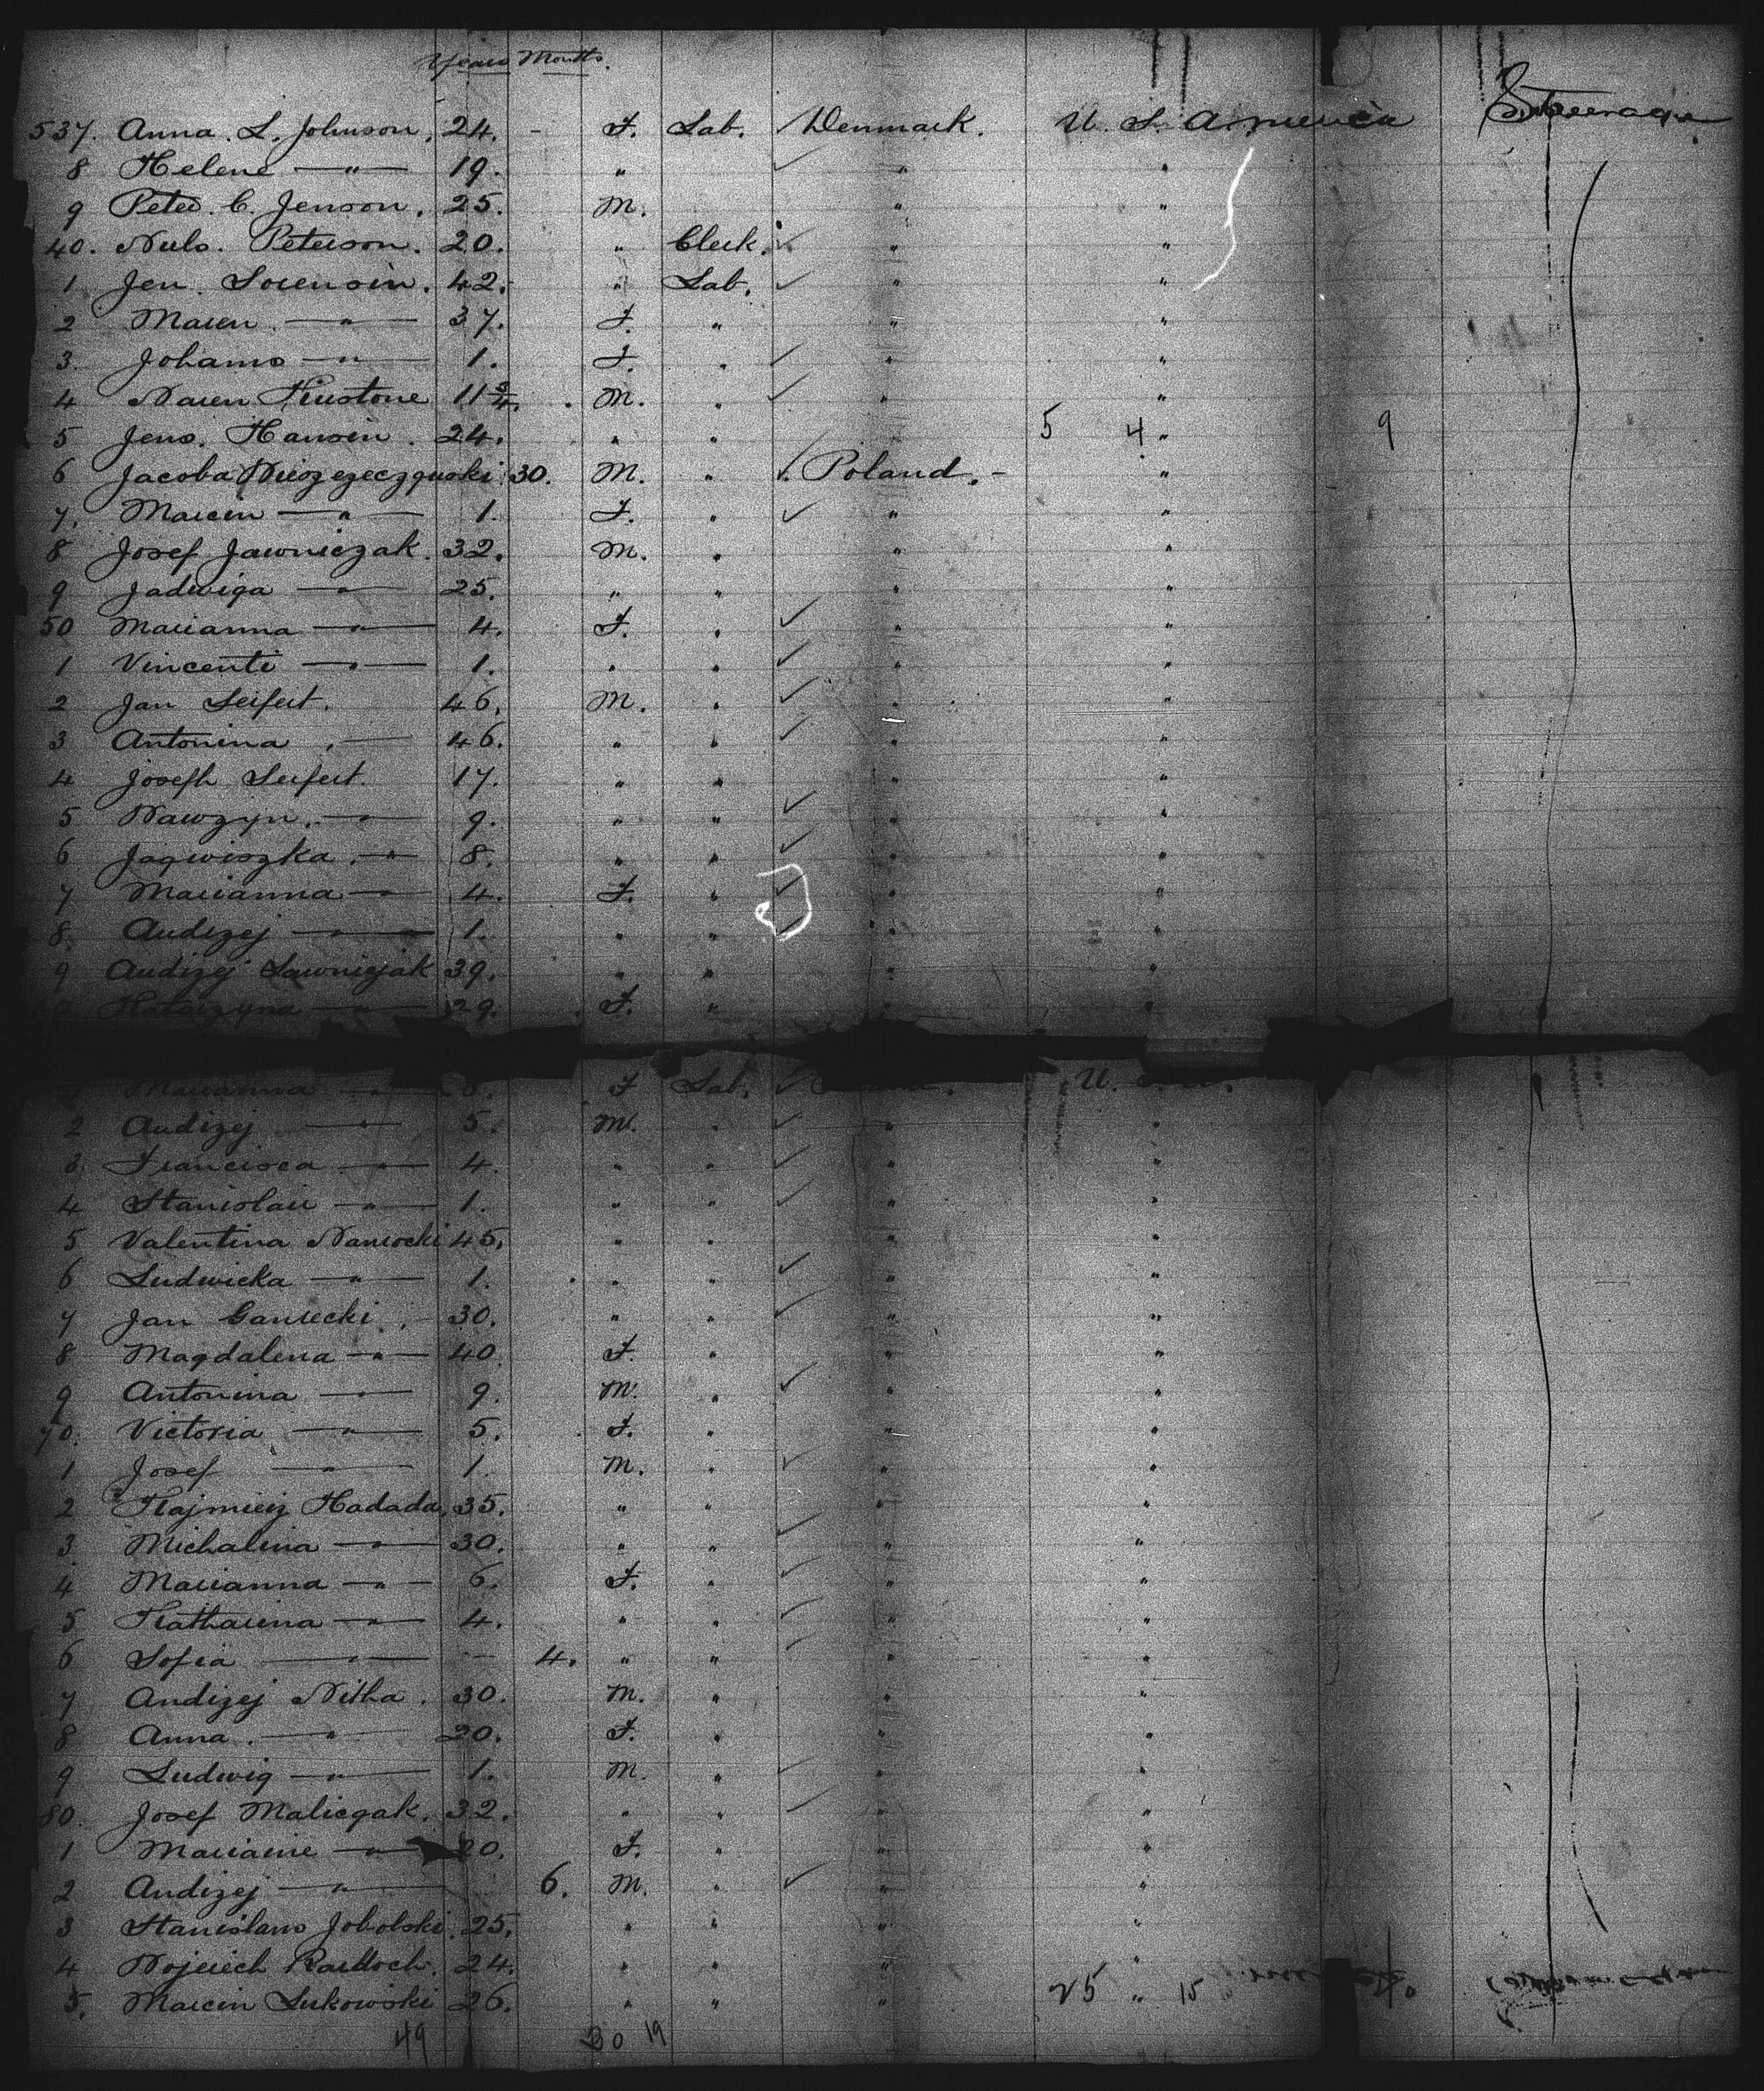 Years Months.
537. Anna. L. Johnson, 24. - F. Lab. ✓ Denmark. U. S. America Steerage
8 Helene — " — 19. " ✓ " "
9 Peter. C. Jenson. 25. M. " "
40. Neils. Peterson. 20. " Clerk. ✓ " "
1 Jen. Sorensin. 42. " Lab. ✓ "
2 Maren. — " — 37. F. " " "
3. Johams — " — 1. F. " ✓ " "
4 Naren Kirstone 11 3/4. M. " ✓ " "
5 Jens. Hansin. 24. " " 5 4 " 9
6 Jacoba 30. M. " ✓. Poland. - "
7. Marcin — " — 1. F. " ✓ " "
8 Josef Jawniczak. 32. M. " " "
9 Jadwiga — " — 25. " " " "
50 Marianna — " — 4. F. " ✓ " "
1 Vincenti — " — 1. " " ✓ " "
2 Jan Seifert. 46. M. " ✓ " "
3 Antonina . — 46. " " ✓ " "
4 Joseph Seifert. 17. " " " "
5 Wawzyn. — 9. " " ✓ " "
6 Jaqwiszka. — " 8. " " ✓ " "
7 Marianna — " — 4. F. " ✓ " "
8. Andrzej — " — 1. " " ✓ " "
9 Andrzej Lawnizjak 39. " " " "
Katarzyna — " — 29. F. " " "
Marianna — " — F Lab. ✓ U.
2 Andrzej — " — 5. M. " ✓ " "
3. Francisca — " — 4. " " ✓ " "
4 Stanislau — " — 1. " " ✓ " "
5 Valentina Narrocki 45. " " " "
6 Ludwicka — " — 1. " " ✓ " "
7 Jan Garrecki. 30. " " ✓ " "
8 Magdalena — " — 40. F. " " "
9 Antonina — " — 9. M. " ✓ " "
70. Victoria — " — 5. F. " " "
1 Josef — " — 1. M. " ✓ " "
2 Kajmierz Hadada, 35. " " " "
3. Michalina — " — 30. " " ✓ " "
4 Marianna — " — 6. F. " ✓ " "
5 Katharina — " — 4. " " ✓ " "
6 Sofia — " — - 4. " " ✓ " "
7 Andrzej Nitka. 30. M. " " "
8 Anna. — " — 20. F. " " "
9 Ludwig — " — 1. M. " ✓ " "
80. Josef Maliczak. 32. " " ✓ " "
1 Mariane — " — 20. F. " " "
2 Andrzej — " — 6. M. " ✓ " "
3 Stanislaws Jobolski. 25. " " " "
4 Wojciech 24. " " " "
5. Marcin Lukowski 26. " " " 25 " 15 40
49 30 19